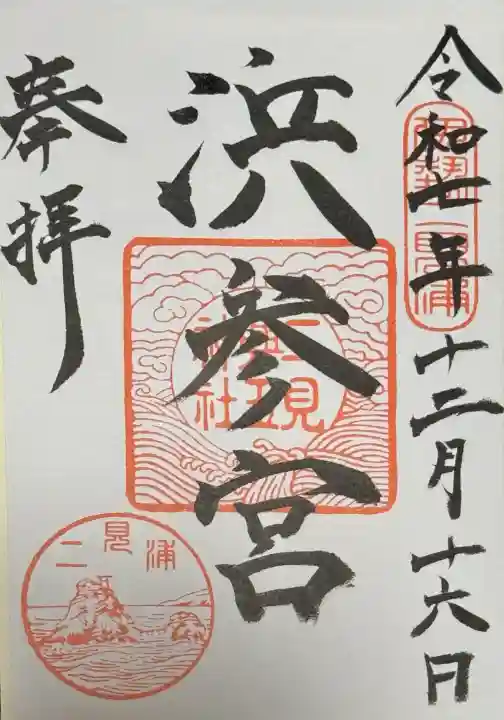 令和七年十二月十六日
伊勢二見浦
浜参宮
二見
興玉
神社
奉拝
二見浦